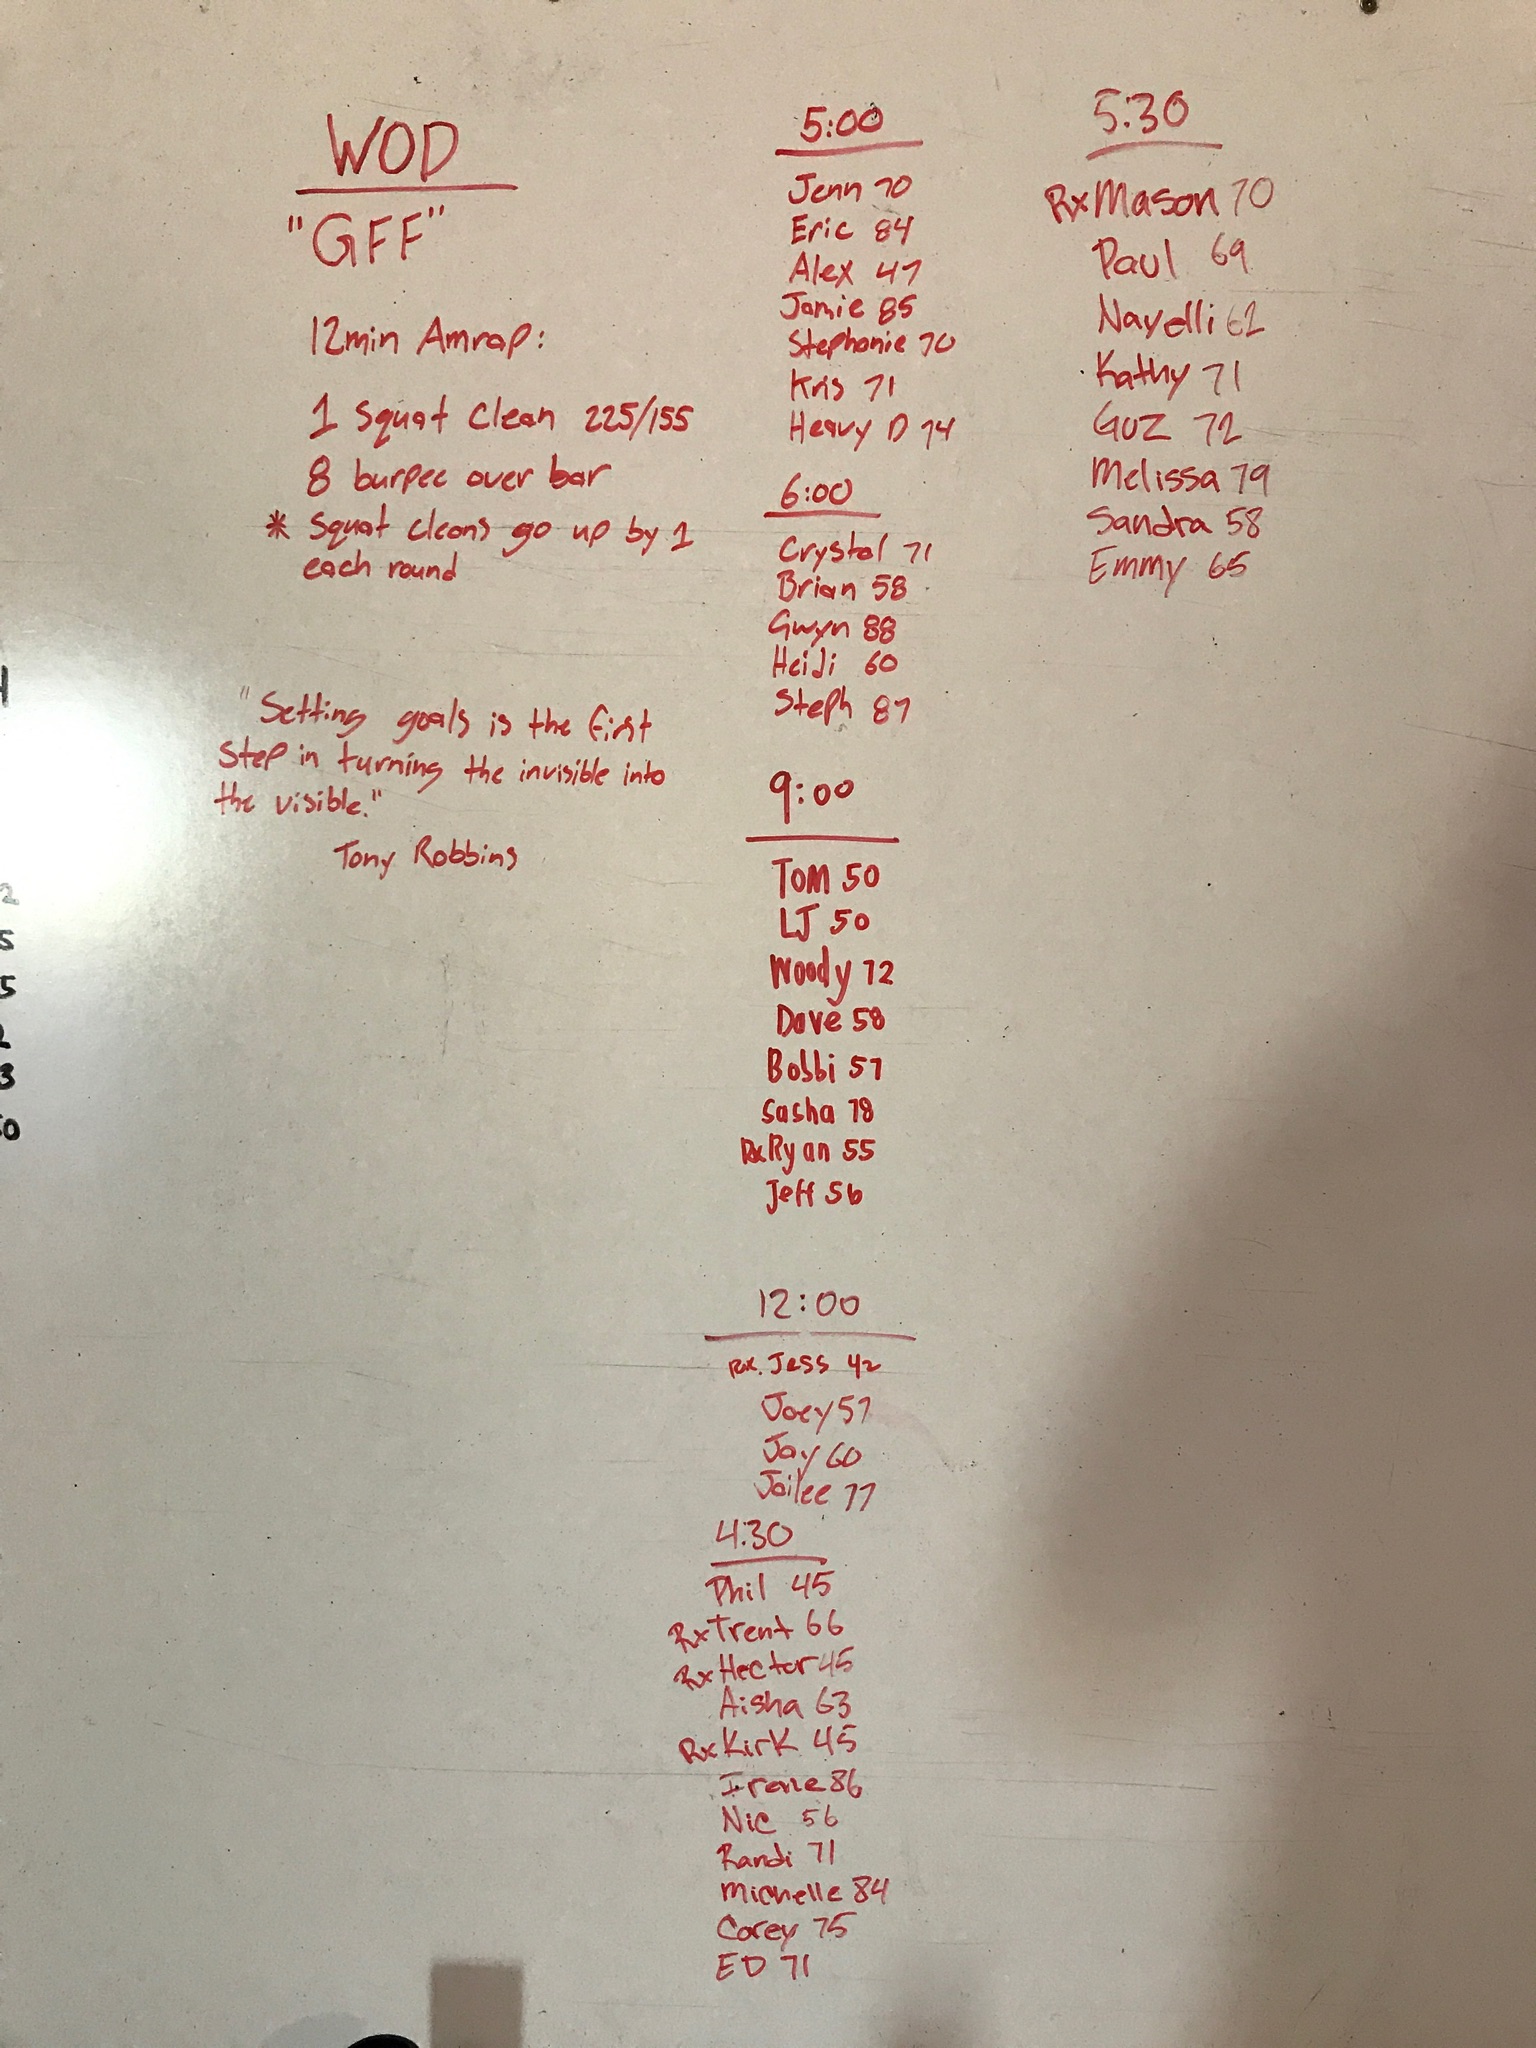 WOD
"GFF"
12min Amrap:
1 Squat Clean 225/155
8 burpee over bar
* Squat cleans go up by 1
each round
"Setting goals is the first
step in turning the invisible into
the visible."
Tony Robbins
5:00
Jenn 70
Eric 84
Alex 47
Jamie 85
Stephanie 70
Kris 71
Heavy D 74
6:00
Crystal 71
Brian 58
Gwyn 88
Heidi 60
Steph 87
9:00
Tom 50
LJ 50
Woody 72
Dave 58
Bobbi 57
Sasha 78
RxRyan 55
Jeff 56
12:00
Rx. Jess 42
Joey 57
Jay 60
Jailee 77
4:30
Phil 45
RxTrent 66
RxHector 45
Aisha 63
RxKirk 45
Irene 86
Nic 56
Randi 71
Michelle 84
Corey 75
ED 71
5:30
RxMason 70
Paul 69
Nayelli 62
Kathy 71
Guz 72
Melissa 79
Sandra 58
Emmy 65
2
5
5
3